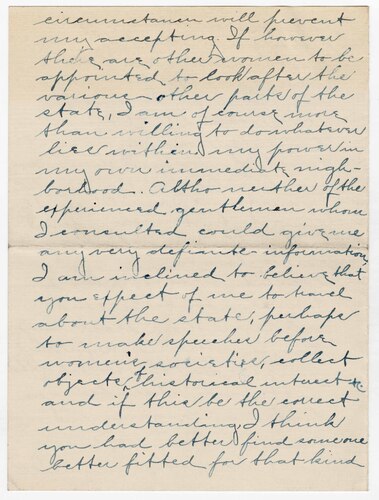 circumstances will prevent
my accepting. If however
there are other women to be
appointed to look after the
various other parts of the
state, I am of course more
than willing to do whatever
lies within my power in
my own immediate nigh-
borhood. Altho neither of the
experienced gentlemen whom
I consulted could give me
any very definite information,
I am inclined to believe that
you expect of me to travel
about the state, perhaps
to make speeches before
women's societies, collect
objects of historical interest &c
and if this be the correct
understanding, I think
you had better find someone
better fitted for that kind